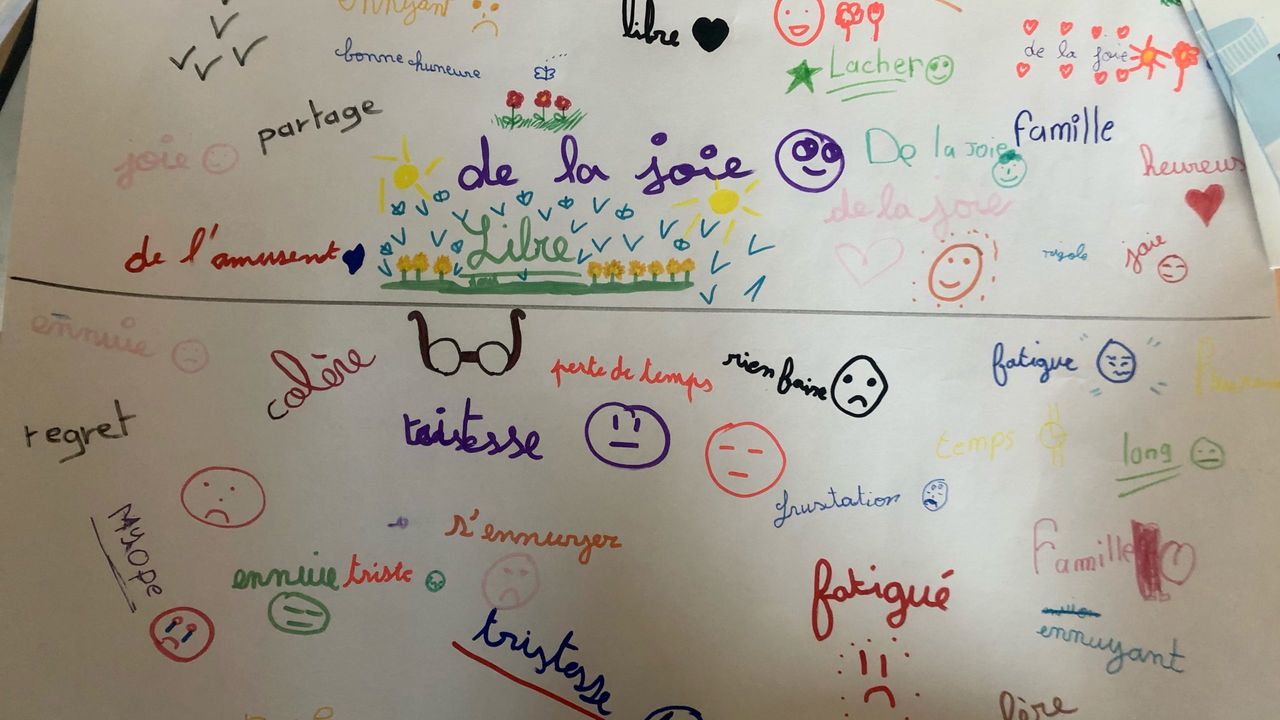 ennuyant
libre
bonne humeure
Lacher
de la joie
partage
famille
joie
de la joie
De la joie
heureux
de la joie
de l'amusent
Libre
rigole
joie
ennuie
colère
perte de temps
rien faire
fatigue
regret
tristesse
temps
long
frustation
Myope
s'ennuyer
ennuie
triste
Famille
fatigué
ennuyant
tristesse